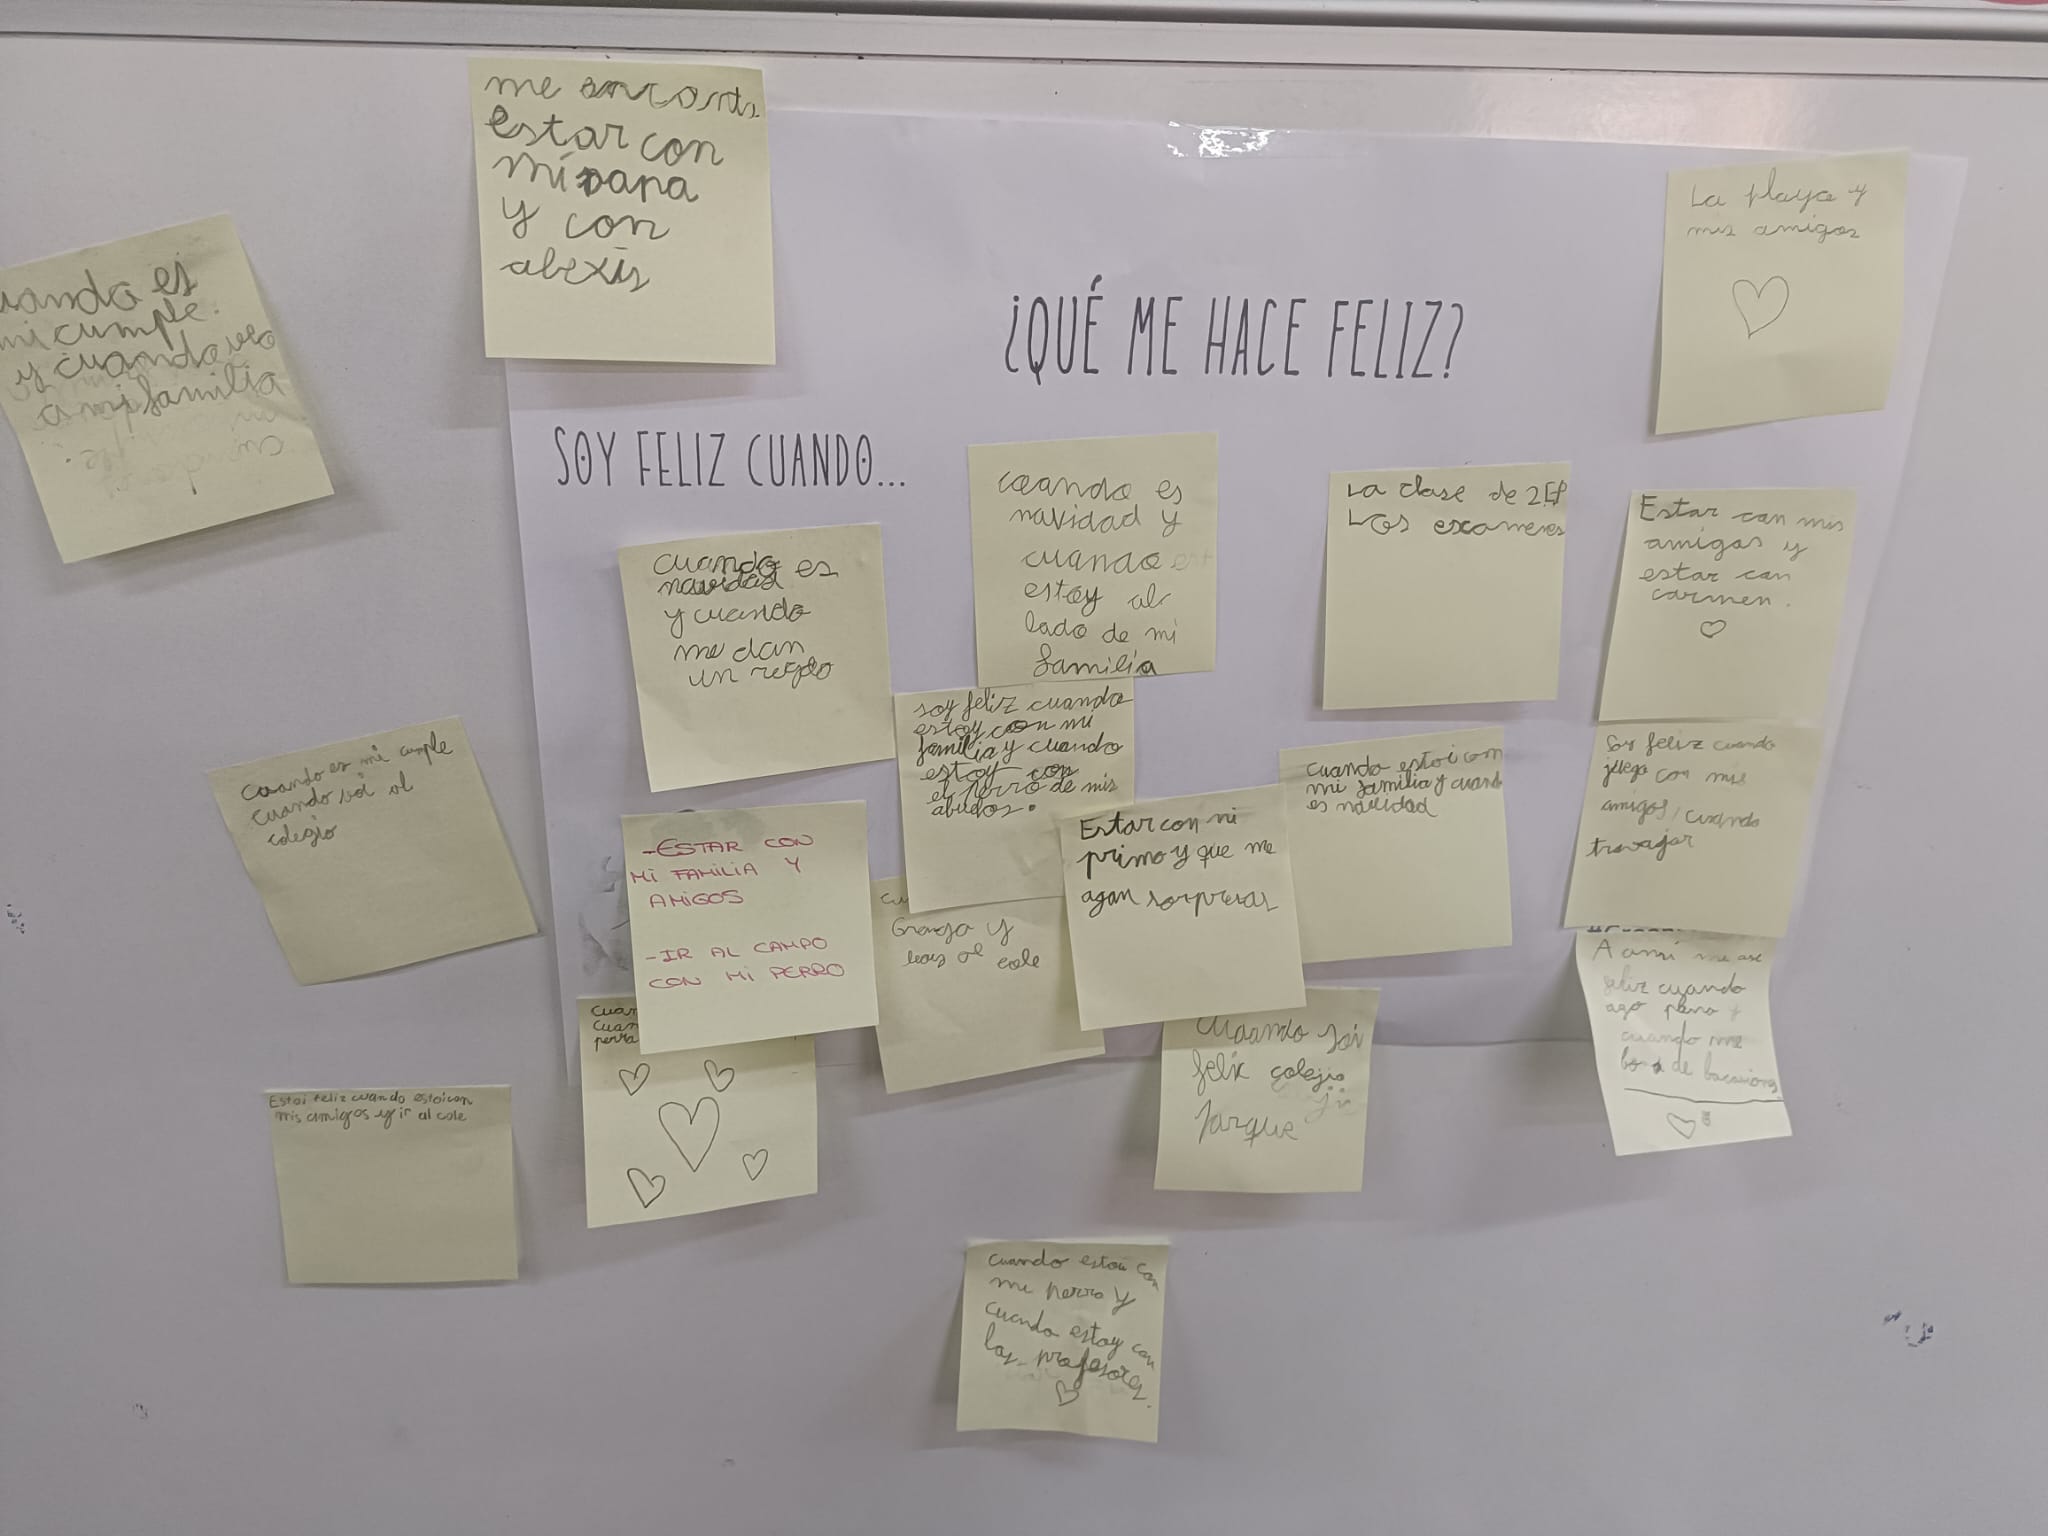 me encanta
estar con
mi papa
y con
alexis
cuando es
mi cumple.
y cuando veo
a mi familia
La playa y
mis amigos
¿QUÉ ME HACE FELIZ?
SOY FELIZ CUANDO...
cuando es
navidad y
cuando
estoy al
lado de mi
familia
La clase de 2EP
Los examenes
Estar con mis
amigos y
estar con
carmen.
cuando es
navidad
y cuando
me dan
un regalo
soy feliz cuando
estoy con mi
familia y cuando
estoy con
el perro de mis
abuelos.
cuando estoi con
mi familia y cuando
es navidad
Soy feliz cuando
juego con mis
amigos, cuando
travajar
Cuando es mi cumple
cuando voi al
colegio
-ESTAR CON
MI FAMILIA Y
AMIGOS
-IR AL CAMPO
CON MI PERRO
Estar con mi
primo y que me
agan sorpresas
Granja y
al cole
A ami me ase
feliz cuando
ago pano y
cuando me
de bacasiones
Cuando soi
felix colegio
Parque
Estoi feliz cuando estoi con
mis amigos y ir al cole
cuando estoy con
mi perro y
cuando estoy con
los profesores.